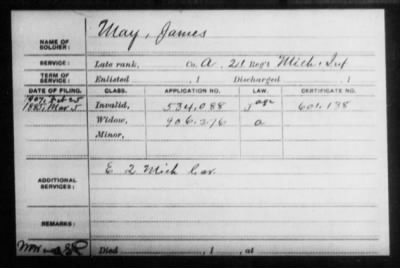 NAME OF SOLDIER: May, James
SERVICE: Late rank, Co. A, 21 Reg't Mich. Inf
TERM OF SERVICE: Enlisted , 1 Discharged , 1
DATE OF FILING. CLASS. APPLICATION NO. LAW. CERTIFICATE NO.
Invalid, 534,088 601,138
Widow, 906,276 a
Minor,
ADDITIONAL SERVICES: E 2 Mich Cav
REMARKS:
Died , 1 , at